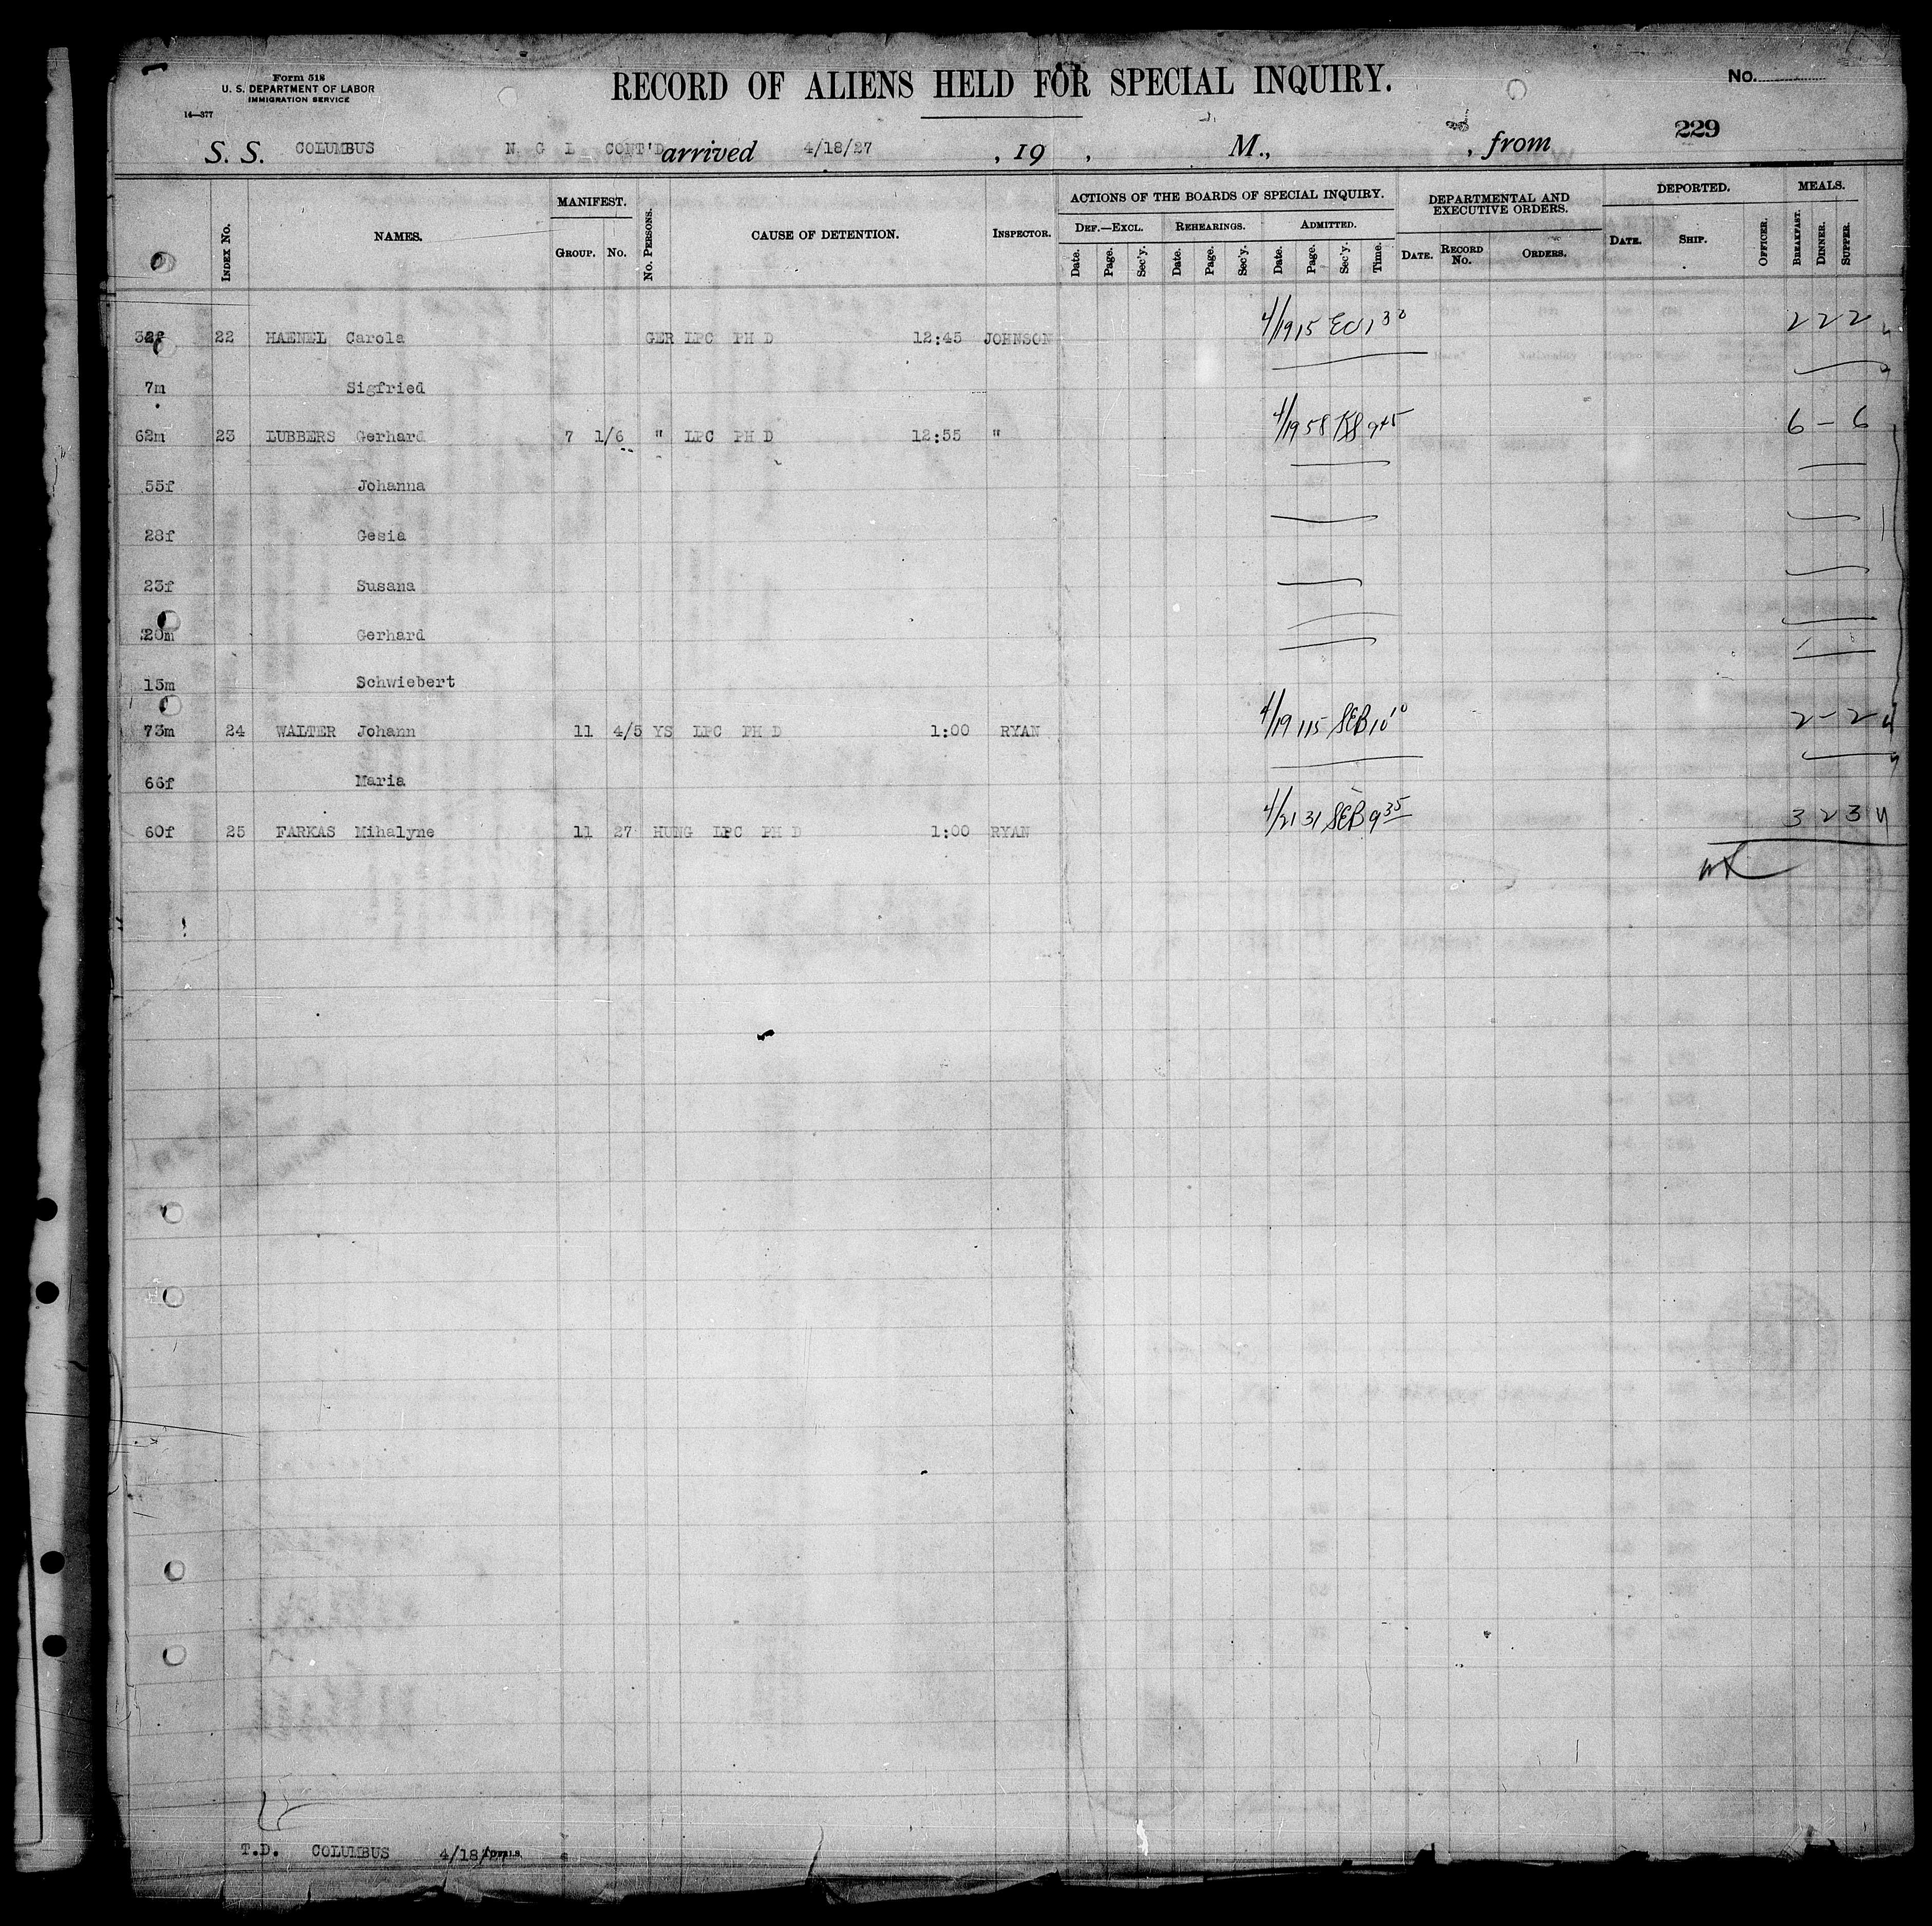 Form 518
U. S. DEPARTMENT OF LABOR
IMMIGRATION SERVICE
14—377
RECORD OF ALIENS HELD FOR SPECIAL INQUIRY.
No.
229
S. S. COLUMBUS N. G L CONT'D arrived 4/18/27 , 19 , M., , from
INDEX No. NAMES. MANIFEST. GROUP. No. No. PERSONS. CAUSE OF DETENTION. INSPECTOR. ACTIONS OF THE BOARDS OF SPECIAL INQUIRY. DEF.—EXCL. Date. Page. Sec'y. REHEARINGS. Date. Page. Sec'y. ADMITTED. Date. Page. Sec'y. Time. DEPARTMENTAL AND EXECUTIVE ORDERS. DATE. RECORD No. ORDERS. DEPORTED. DATE. SHIP. OFFICER. MEALS. BREAKFAST. DINNER. SUPPER.
22 HAENEL Carola GER LPC PH D 12:45 JOHNSON 4/19 15 1 30 2 2 2
7m Sigfried
62m 23 LUBBERS Gerhard 7 1/6 " LPC PH D 12:55 " 4/19 58 9 45 6 – 6
55f Johanna
28f Gesia
23f Susana
20m Gerhard
15m Schwiebert
73m 24 WALTER Johann 11 4/5 YS LPC PH D 1:00 RYAN 4/19 115 SEB 10 10 2 – 2
66f Maria
60f 25 FARKAS Mihalyne 11 27 HUNG LPC PH D 1:00 RYAN 4/21 31 SEB 9 35 3 2 3
T.D. COLUMBUS 4/18/27